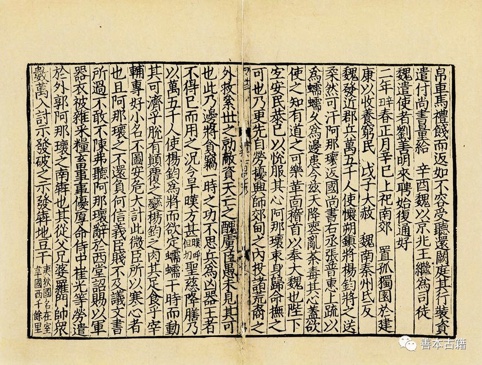 帛車馬禮餞而返如不容受聽還闕庭其行裝資
遣付尚書量給 辛酉魏以京兆王繼爲司徒
魏遣使者劉善明來聘始復通好
二年春正月辛巳上祀南郊 置孤獨園於建
康以收養窮民 戊子大赦 魏南秦州氐反
魏發近郡兵萬五千人使懷朔鎮將楊鈞將之送
柔然可汗阿那瓌返國尚書左丞張普惠上疏以
爲蠕蠕久爲邊患今茲天降喪亂荼毒其心蓋欲
使之知有道之可樂革面稽首以奉大魏也陛下
宜安民恭己以悅服其心阿那瓌束身歸命撫之
可也乃更先自勞擾興師郊甸之内投諸荒裔之
外救累世之勍敵資天亡之醜虜臣愚未見其可
也此乃邊將貪竊一時之功不思兵爲凶器王者
不得已而用之況今旱暵方甚聖慈降膳乃
以萬五千人使楊鈞爲將而欲定蠕蠕干時而動
其可濟乎脫有顛覆之變楊鈞之肉其足食乎宰
輔專好小名不圖安危大計此微臣所以寒心者
也且阿那瓌之不還負何信義臣賤不及議文書
所過不敢不陳弗聽阿那瓌辭於西堂詔賜以軍
器衣被雜采糧畜事事優厚命侍中崔光等勞遣
於外郭阿那瓌之南奔也其從父兄婆羅門帥衆
數萬人討示發破之示發奔地豆干國名在室韋國西千餘里
善本古籍